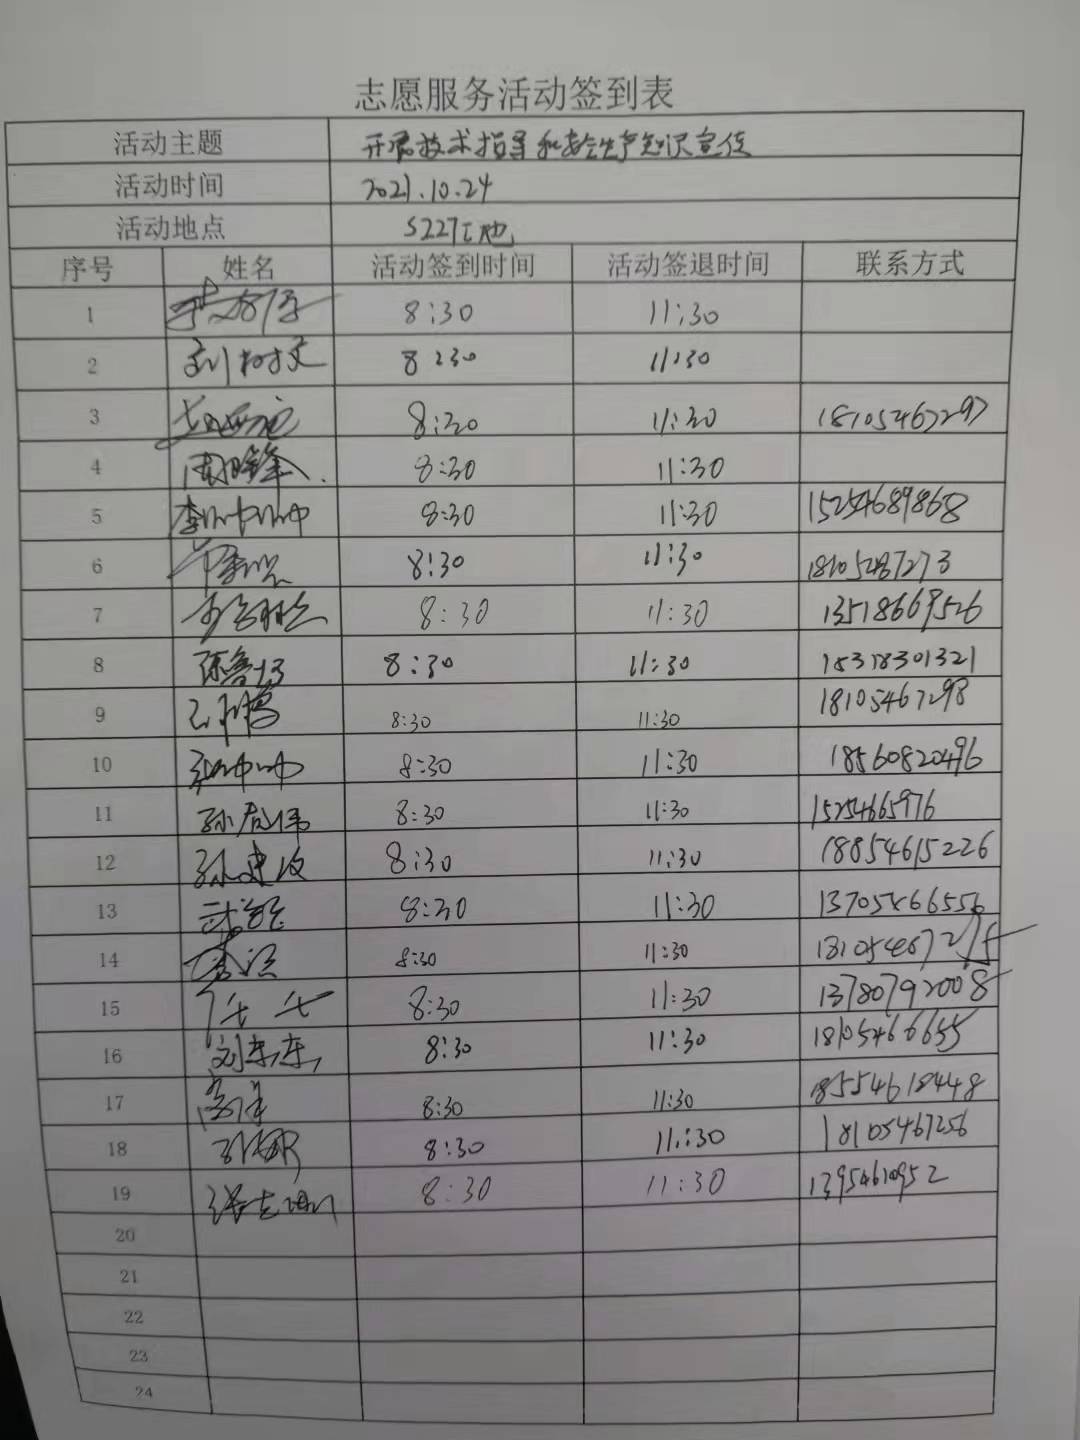 志愿服务活动签到表
活动主题 开展技术指导和安全生产知识宣传
活动时间 2021.10.24
活动地点 S227工地
序号 姓名 活动签到时间 活动签退时间 联系方式
1 8:30 11:30
2 刘树文 8:30 11:30
3 8:30 11:30 18105467297
4 8:30 11:30
5 李冲冲 8:30 11:30 15254689868
6 8:30 11:30 18105467273
7 8:30 11:30 13518669526
8 陈鲁坊 8:30 11:30 18318301321
9 8:30 11:30 18105467298
10 张冲冲 8:30 11:30 18560820496
11 孙彪伟 8:30 11:30 15254665976
12 孙建波 8:30 11:30 18854615226
13 8:30 11:30 13705466556
14 8:30 11:30
15 8:30 11:30 13780792008
16 刘东东 8:30 11:30 18105466655
17 高洋 8:30 11:30 18554618448
18 8:30 11:30 18105467256
19 8:30 11:30 13954610952
20
21
22
23
24